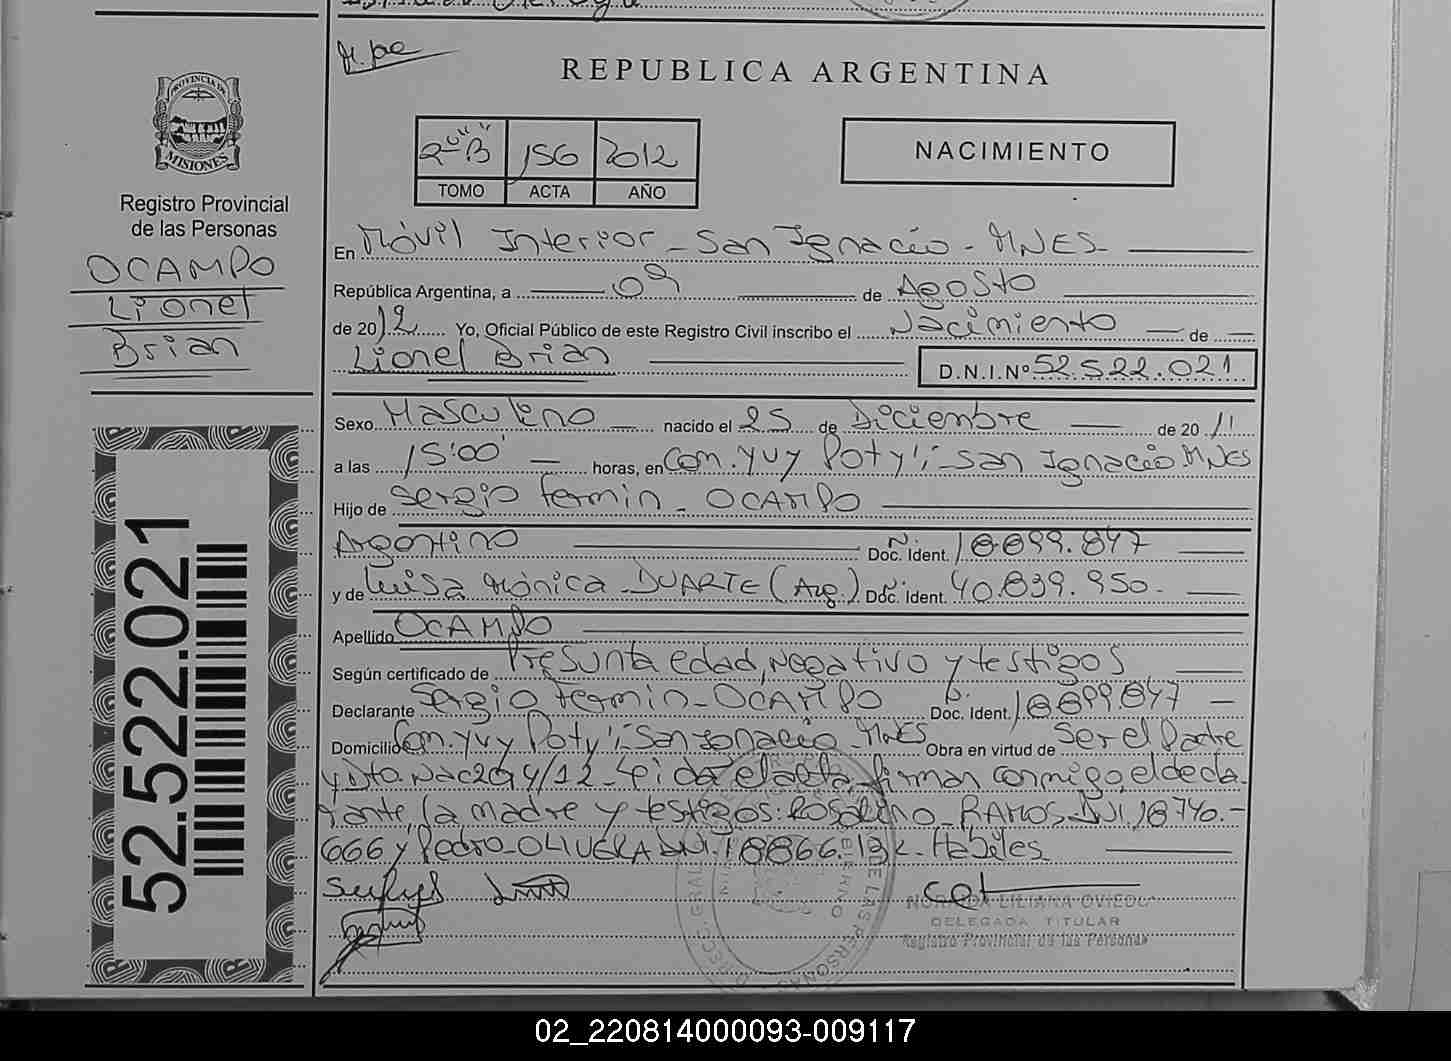 REPUBLICA ARGENTINA
PROVINCIA DE
MISIONES
Registro Provincial
de las Personas
OCAMPO
Lionel
Brian
52.522.021
2º "B" 156 2012
TOMO ACTA AÑO
NACIMIENTO
En Móvil Interior - San Ignacio - MNES-
República Argentina, a 09 de Agosto
de 2012 Yo, Oficial Público de este Registro Civil inscribo el Nacimiento de
Lionel Brian D.N.I.Nº 52.522.021
Sexo Masculino nacido el 25 de Diciembre de 2011
a las 15:00 horas, en Com. Yvy Poty'i - San Ignacio MNES
Hijo de Sergio Fermin - OCAMPO
Argentino Doc. Ident. 18899.847
y de Luisa Mónica - DUARTE (Arg.) Doc. Ident. 40.839.950.-
Apellido OCAMPO
Según certificado de Presunta edad, Negativo y testigos
Declarante Sergio Fermin - OCAMPO Doc. Ident. 18899.847 -
Domicilio Com. Yvy Poty'i - San Ignacio - MNES Obra en virtud de Ser el Padre
y Dto. Nac 294/12 - Leida el acta, firman conmigo, el decla-
rante, la madre y testigos: Rosalino - RAMOS - DNI. 18740.-
666 y Pedro - OLIVERA DNI. 18866. Habiles
NORMA LILIANA OVIEDO
DELEGADA TITULAR
Registro Provincial de las Personas
02_220814000093-009117